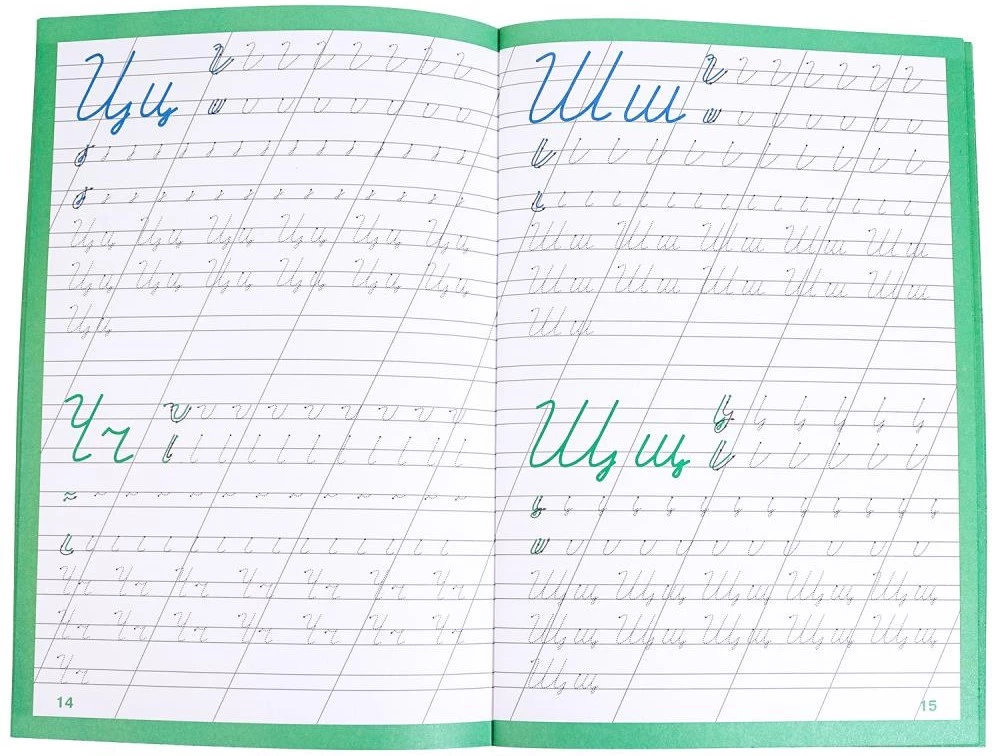 Цц
Цц Цц Цц Цц Цц Цц
Цц Цц Цц Цц Цц Цц
Цц
Чч
Чч Чч Чч Чч Чч Чч Чч
Чч Чч Чч Чч Чч Чч Чч
Чч
14
Шш
Шш Шш Шш Шш Шш
Шш Шш Шш Шш Шш
Шш
Щщ
Щщ Щщ Щщ Щщ Щщ
Щщ Щщ Щщ Щщ Щщ
Щщ
15